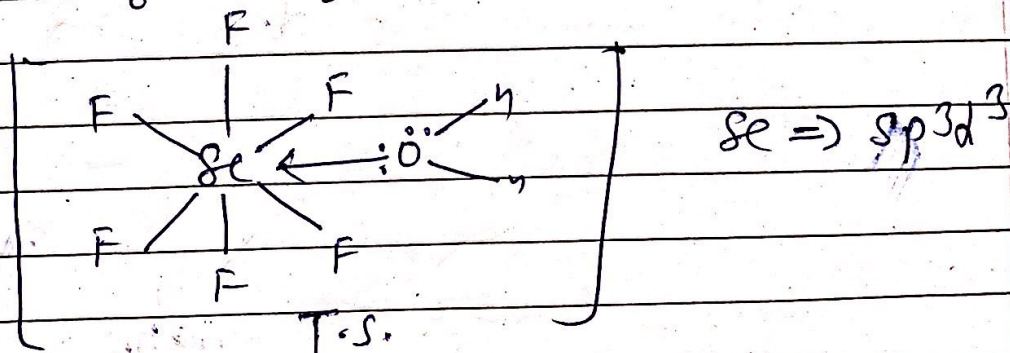 F
F F
Se ← :Ö H
H
F F
F
T.S.
Se => sp³d³